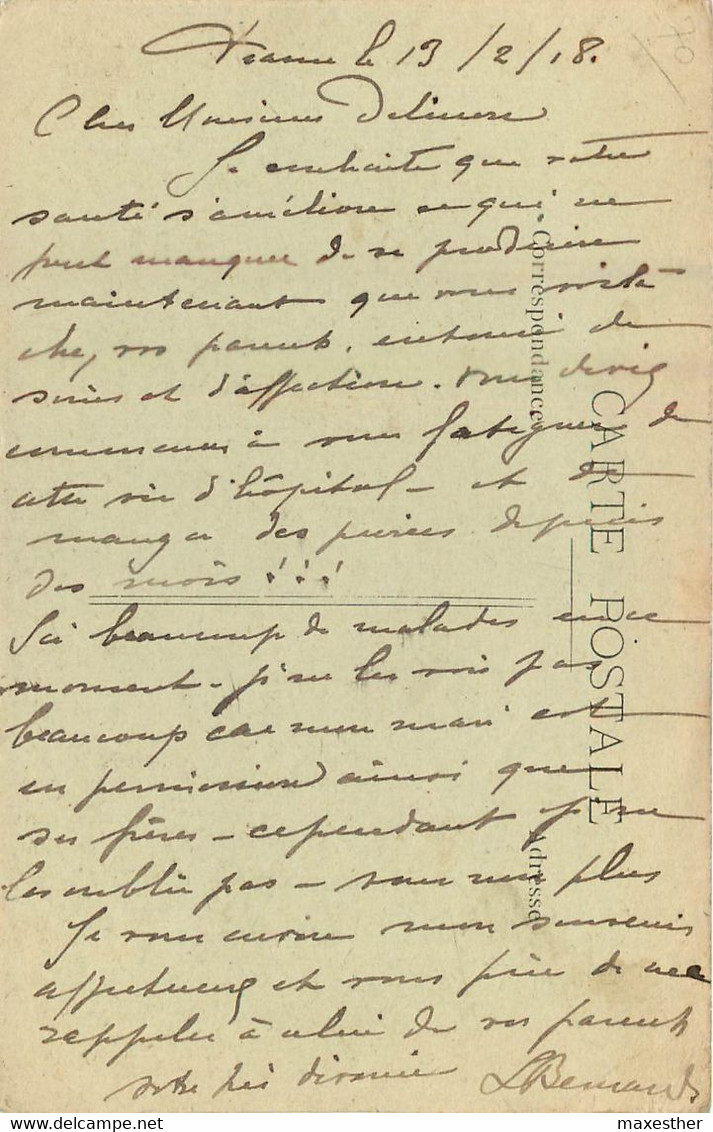 le 13/2/18.
Cher Monsieur
Je souhaite que votre
santé s'améliore ce qui ne
peut manquer de se produire
maintenant que vous voilà
chez vos parents, entouré de
soins et d'affection. Vous deviez
commencer à vous fatiguer de
cette vie d'hôpital - et de
manger des purées depuis
des mois !!!
Ici beaucoup de malades en ce
moment - je ne les vois pas
beaucoup car mon mari est
en permission ainsi que
ses frères - cependant je ne
les oublie pas - vous non plus
Je vous envoie mon souvenir
affectueux et vous prie de me
rappeler à celui de vos parents
votre très dévouée LBernard
CARTE POSTALE
Correspondance
Adresse
70
maxesther